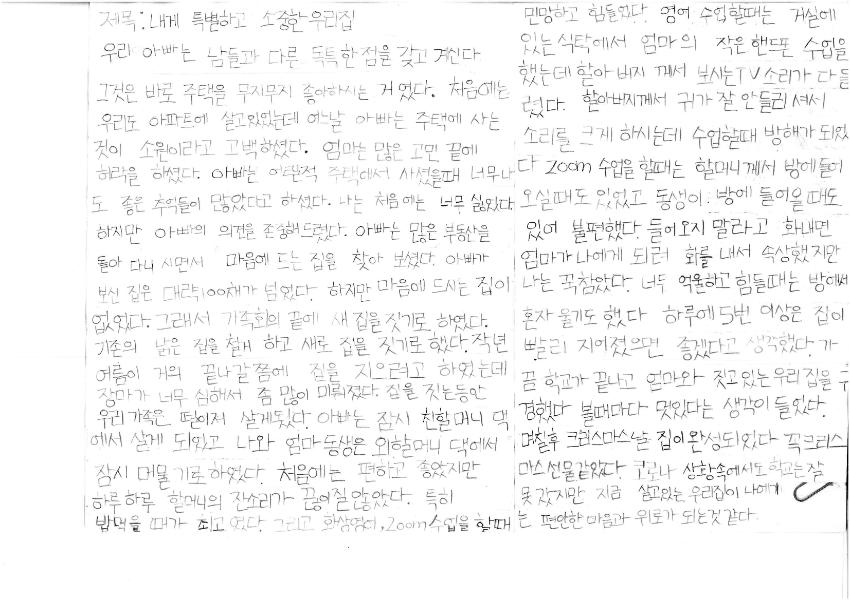 제목: 내게 특별하고 소중한 우리집
우리 아빠는 남들과 다른 독특한 점을 갖고 계신다
그것은 바로 주택을 무지무지 좋아하시는 거였다. 처음에는
우리도 아파트에 살고있었는데 어느날 아빠는 주택에 사는
것이 소원이라고 고백하셨다. 엄마는 많은 고민 끝에
허락을 하셨다. 아빠는 어렸을적 주택에서 사셨을때 너무나
도 좋은 추억들이 많았다고 하셨다. 나는 처음에는 너무 싫었다
하지만 아빠의 의견을 존중해드렸다. 아빠는 많은 부동산을
돌아 다니시면서 마음에 드는 집을 찾아 보셨다. 아빠가
보신 집은 대략 100채가 넘었다. 하지만 마음에 드시는 집이
없었다. 그래서 가족회의 끝에 새 집을 짓기로 하였다.
기존의 낡은 집을 철거 하고 새로 집을 짓기로 했다. 작년
여름이 거의 끝나갈쯤에 집을 지으려고 하였는데
장마가 너무 심해서 좀 많이 미뤄졌다. 집을 짓는동안
우리가족은 떨어져 살게됬다. 아빠는 잠시 친할머니 댁
에서 살게 되었고 나와 엄마 동생은 외할머니 댁에서
잠시 머물기로 하였다. 처음에는 편하고 좋았지만
하루하루 할머니의 잔소리가 끊이질 않았다. 특히
밥먹을 때가 최고였다. 그리고 화상영어, Zoom 수업을 할때
민망하고 힘들었다. 영어 수업할때는 거실에
있는 식탁에서 엄마의 작은 핸드폰 수업을
했는데 할아버지 께서 보시는 TV 소리가 다 들
렸다. 할아버지께서 귀가 잘 안들리셔서
소리를 크게 하시는데 수업할때 방해가 되었
다 Zoom 수업을 할때는 할머니께서 방에 들어
오실때도 있었고 동생이 방에 들어올때도
있어 불편했다. 들어오지 말라고 화내면
엄마가 나에게 되려 화를 내서 속상했지만
나는 꾹참았다. 너무 억울하고 힘들때는 방에서
혼자 울기도 했다 하루에 5번 이상은 집이
빨리 지어졌으면 좋겠다고 생각했다. 가
끔 학교가 끝나고 엄마와 짓고있는 우리집을
경했다 볼때마다 멋있다는 생각이 들었다.
며칠후 크리스마스날 집이 완성되었다 꼭크리스
마스 선물같았다. 코로나 상황속에서도 학교는 잘
못 갔지만 지금 살고있는 우리집이 나에게
는 편안한 마음과 위로가 되는것 같다.